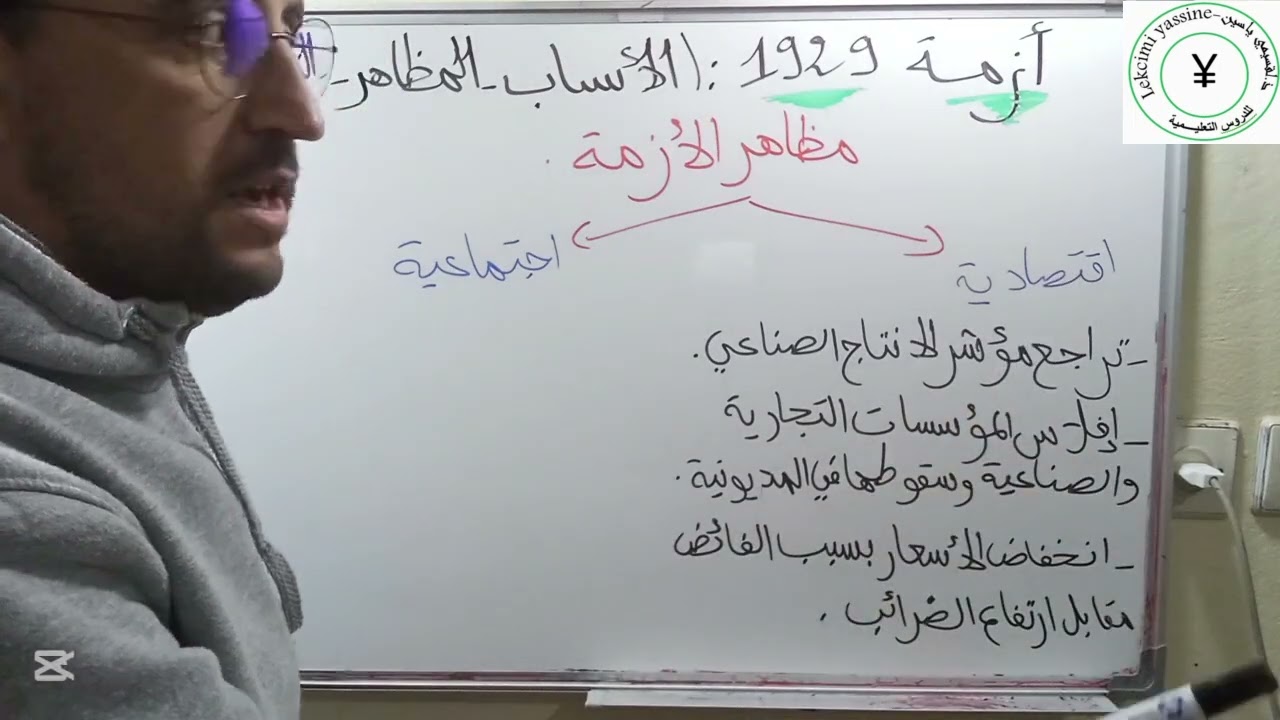 أزمة 1929: (الأسباب - المظاهر -
مظاهر الأزمة
اقتصادية
اجتماعية
- تراجع مؤشر الانتاج الصناعي.
- إفلاس المؤسسات التجارية
والصناعية وسقوطها في المديونية.
- انخفاض الأسعار بسبب الفائض
مقابل ارتفاع الضرائب.
Lekcimi yassine - ذ. لقسيمي ياسين
¥
للدروس التعليمية